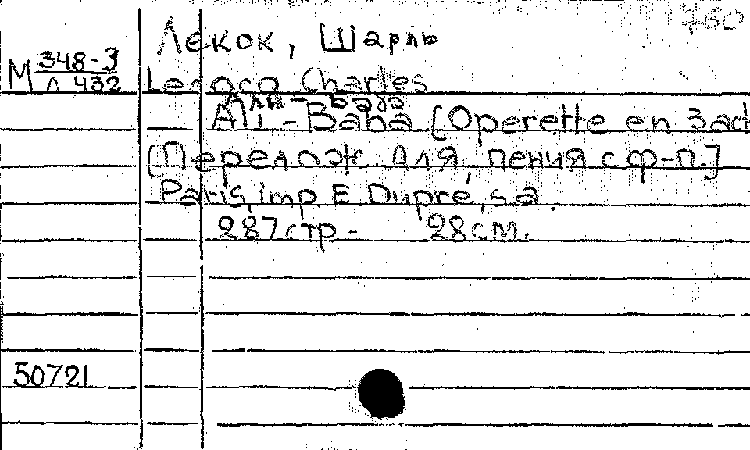 760
Лекок, Шарль
М 348-3
Л 432
Lecocq Charles
Али-Баба
Ali-Baba [Operette en 3 act
[Перелож. для пения с ф-п.]
Paris, imp E. Dupré, s.a.
287 стр - 28 см.
50721